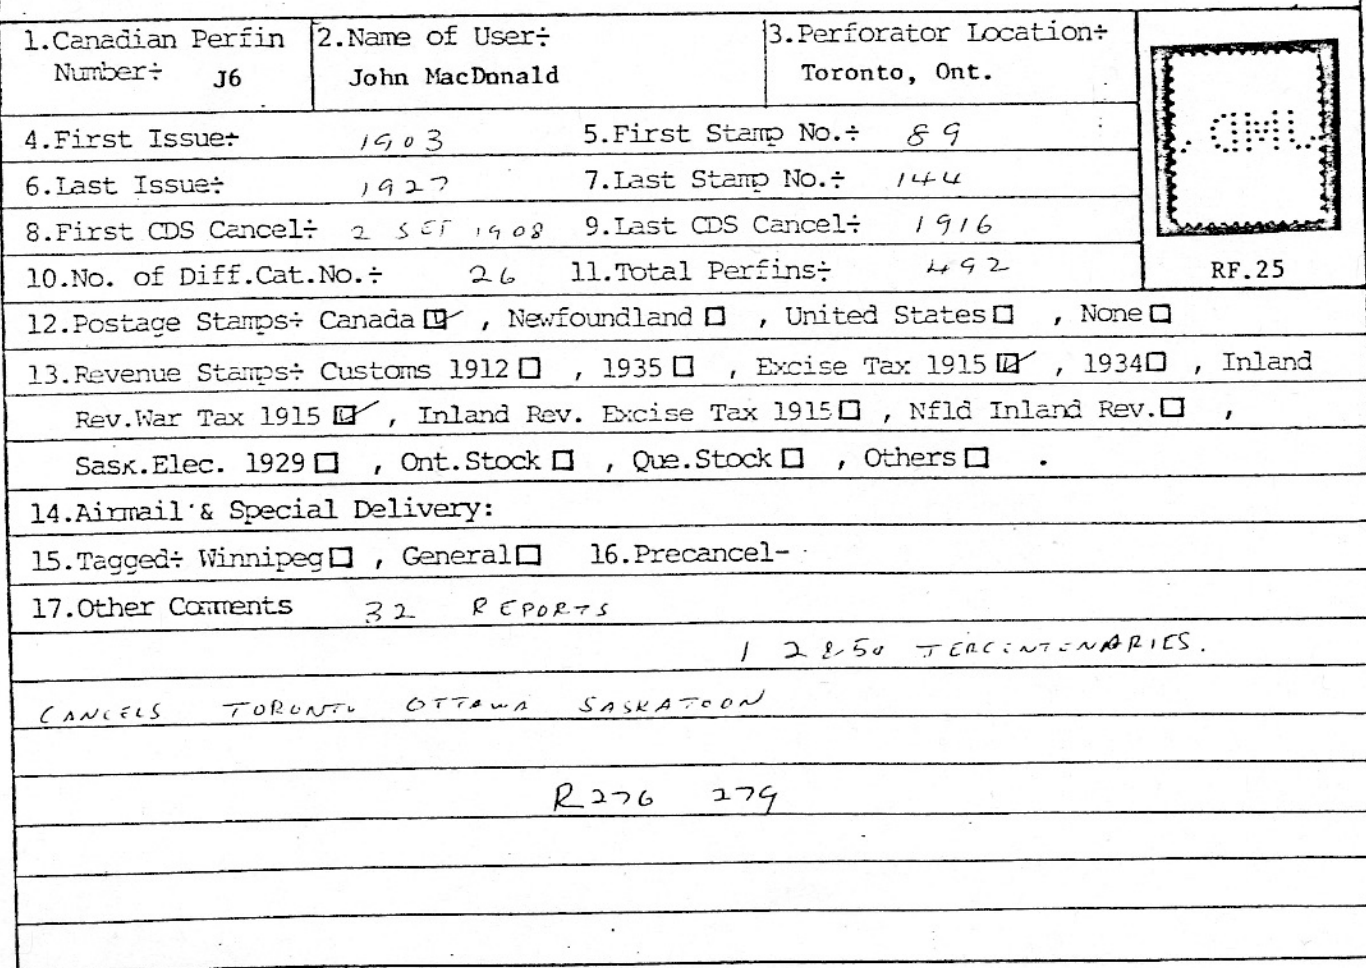 1.Canadian Perfin Number÷ J6
2.Name of User÷ John MacDonald
3.Perforator Location÷ Toronto, Ont.
4.First Issue÷ 1903 5.First Stamp No.÷ 89
6.Last Issue÷ 1927 7.Last Stamp No.÷ 144
8.First CDS Cancel÷ 2 SET 1908 9.Last CDS Cancel÷ 1916
10.No. of Diff.Cat.No.÷ 26 11.Total Perfins÷ 492
RF.25
12.Postage Stamps÷ Canada ☑ , Newfoundland ☐ , United States ☐ , None ☐
13.Revenue Stamps÷ Customs 1912 ☐ , 1935 ☐ , Excise Tax 1915 ☑ , 1934 ☐ , Inland
Rev.War Tax 1915 ☑ , Inland Rev. Excise Tax 1915 ☐ , Nfld Inland Rev. ☐ ,
Sask.Elec. 1929 ☐ , Ont.Stock ☐ , Que.Stock ☐ , Others ☐ .
14.Airmail & Special Delivery:
15.Tagged÷ Winnipeg ☐ , General ☐ 16.Precancel-
17.Other Comments 32 REPORTS
1 2 & 50 TERCENTENARIES.
CANCELS TORONTO OTTAWA SASKATOON
R276 279